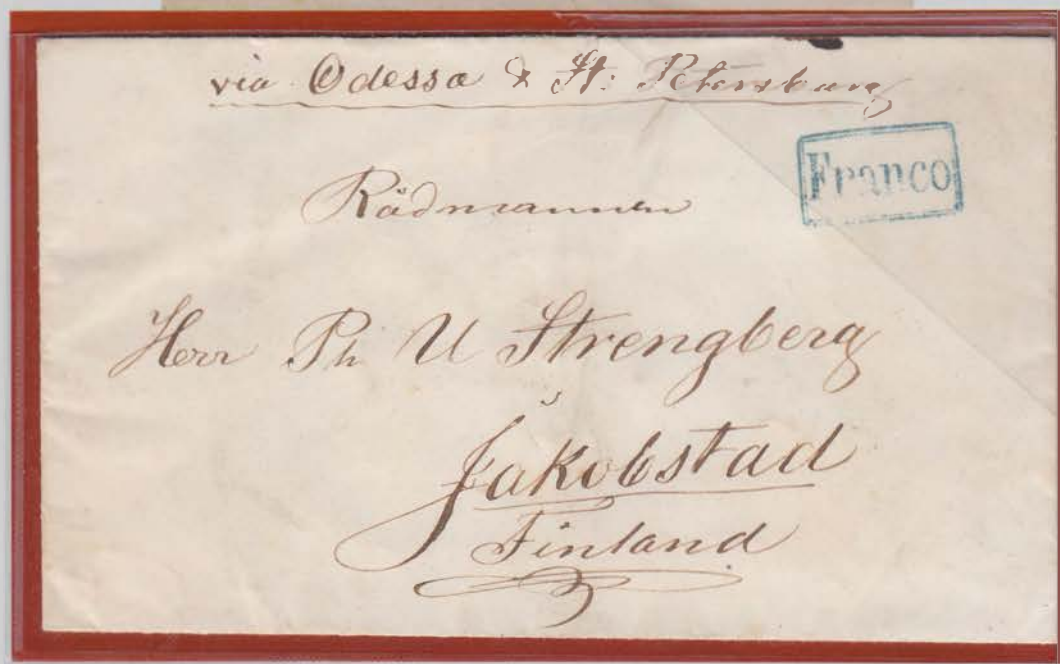 via Odessa & St: Petersburg
Franco
Rådmannen
Herr Ph U Strengberg
i
Jakobstad
Finland